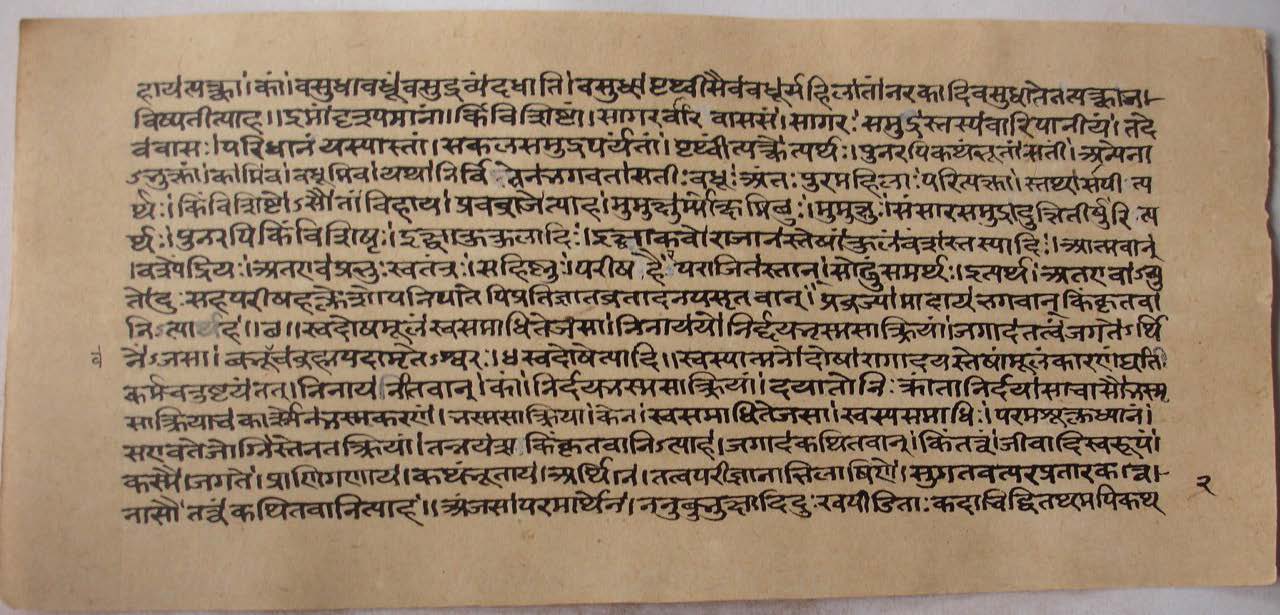 हाय त्यक्त्वा।कां।वसुधावधूं।वसुद्रव्यं दधाति।वसुधा पृथ्वी सैव वधूर्महिला।तां।नरकादिवसुधातेन त्यक्त्वा न।
विष्यतीत्याह।।इमां।दृश्यमानां।किंविशिष्टां।सागरवारिवाससं।सागरः।समुद्रस्तस्य वारिपानीयं।तदे
व वासः।परिधानं यस्यास्तां।सकलसमुद्रपर्यंतां।पृथ्वीं त्यक्त्वेत्यर्थः।पुनरपि कथंभूतां।सतीं।अन्येना
ऽभुक्तां।कामिव।वधूमिव।यथा निर्वि भगवता सती।वधूः।अंतःपुरमहिला।परित्यक्ता।
र्थः।किंविशिष्टोऽसौ।तां विहाय।प्रवव्राजेत्याह।मुमुक्षुः।मुमुक्षुः।संसारसमुद्रादुत्तितीर्षुरित्य
र्थः।पुनरपि किंविशिष्टः।इक्ष्वाकुकुलादिः।राजानस्तेषां।कुलं वंशस्तस्यादिः।आत्मवान्
।अतएव प्रभुः।स्वतंत्रः।सहिष्णुः।परीषहैः पराजितस्तान्।सोढुं समर्थः।इत्यर्थः।अतएवाऽच्यु
तो।परीषह प्रतिज्ञातव्रतादनपसृतवान्।प्रव्रज्यामादाय भगवान् किं कृतवा
निऽत्यार्यह।।स्वदोषमूलं स्वसमाधितेजसा।निनाय यो निर्दयभस्मसाक्रियां।जगाद तत्वं जगतेऽर्थि
नेंऽजसा।बभूव ब्रह्मपदामृतेश्वरः।४ स्वदोषेत्यादि।।स्वस्यात्मनो दोषा रागादयस्तेषां मूलं कारणं घाति
कर्मचतुष्टयं तत्।निनाय नीतवान्।कां।निर्दयभस्मसाक्रियां।दयातो निःक्रांता निर्दया।सा चासौ भस्म
साक्रिया च भस्मकरणं।भस्मसाक्रिया।केन।स्वसमाधितेजसा।स्वस्य समाधिः।परमशुक्लध्यानं।
स एव तेजोग्निस्तेन तक्रियां।किं कृतवानिऽत्याह।जगाद कथितवान्।किं तत्वं।जीवादिस्वरूपं।
कस्मै।जगते।प्राणिगणाय।कथंभूताय।अर्थिने।तत्वपरीज्ञानाभिलाषिणे।सुगतवत्परप्रतारक
नासौ तत्वं कथितवानित्याह।।अंजसा।परमार्थेन।ननु बुभुक्षादिदुःखपीडितः कदाचिद्वितथमपि कथ
२